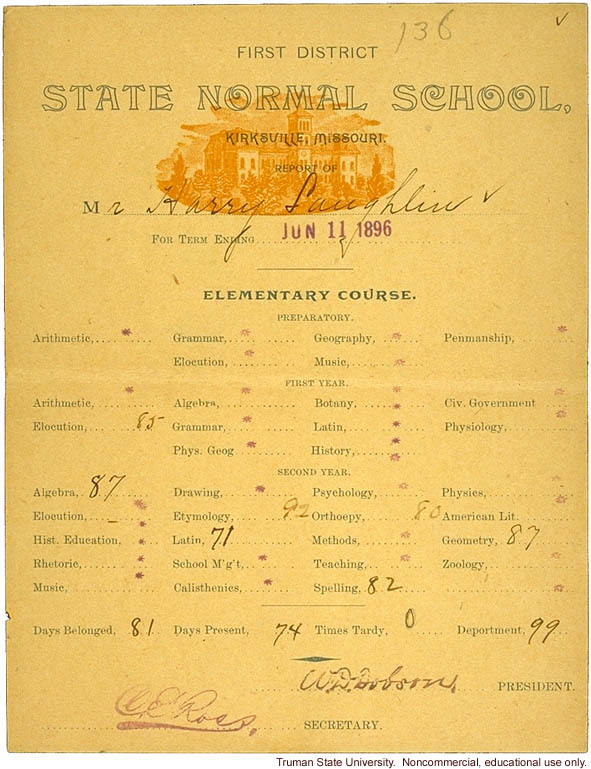 136
✓
FIRST DISTRICT
STATE NORMAL SCHOOL,
KIRKSVILLE, MISSOURI.
REPORT OF
Mr Harry Laughlin ✓
FOR TERM ENDING JUN 11 1896
ELEMENTARY COURSE.
PREPARATORY.
Arithmetic, * Grammar, * Geography, * Penmanship, *
Elocution, * Music, *
FIRST YEAR.
Arithmetic, * Algebra, * Botany, * Civ. Government *
Elocution, 85 Grammar, * Latin, * Physiology, *
Phys. Geog * History, *
SECOND YEAR.
Algebra, 87 Drawing, * Psychology, * Physics, *
Elocution, * Etymology, 92 Orthoepy, 80 American Lit. *
Hist. Education, * Latin, 71 Methods, * Geometry, 87
Rhetoric, * School M'g't, * Teaching, * Zoology, *
Music, * Calisthenics, * Spelling, 82 *
Days Belonged, 81 Days Present, 74 Times Tardy, 0 Deportment, 99
W.D. Dobson, PRESIDENT.
C.E. Ross, SECRETARY.
Truman State University. Noncommercial, educational use only.